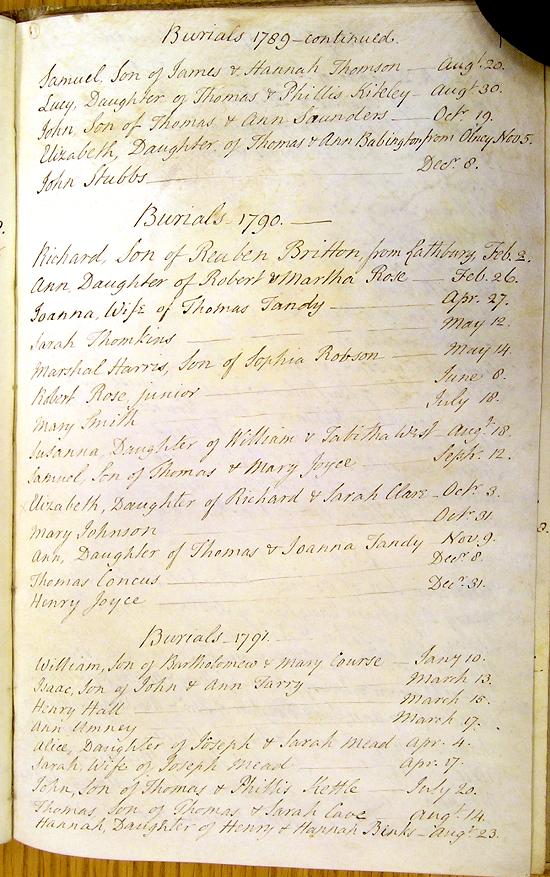 Burials 1789 - continued.
Samuel, Son of James & Hannah Thomson - Augt. 20.
Lucy, Daughter of Thomas & Phillis Kikley - Augt 30.
John, Son of Thomas & Ann Saunders - Octr. 19.
Elizabeth, Daughter of Thomas & Ann Babington from Olney Nov. 5.
John Stubbs - Decr. 8.
Burials - 1790. -
Richard, Son of Reuben Britton, from Lathbury, Feb. 2.
Ann Daughter of Robert & Martha Rose - Feb. 26.
Joanna, Wife of Thomas Tandy - Apr. 27.
Sarah Thomkins - May 12.
Marshal Harris, Son of Sophia Robson - May 14.
Robert Rose, junior - June 8.
Mary Smith - July 18.
Susanna, Daughter of William & Tabitha West - Augt. 18.
Samuel, Son of Thomas & Mary Joyce - Septr. 12.
Elizabeth, Daughter of Richard & Sarah Clare - Octr. 3.
Mary Johnson - Octr. 31.
Ann, Daughter of Thomas & Joanna Tandy Nov. 9.
Thomas Concus - Decr. 8.
Henry Joyce - Decr. 31.
Burials - 1791.
William, Son of Bartholomew & Mary Course - Jany 10.
Isaac, Son of John & Ann Tarry - March 13.
Henry Hall - March 15.
Ann Umney - March 17.
Alice, Daughter of Joseph & Sarah Mead Apr. 4.
Sarah, Wife of Joseph Mead - Apr. 17.
John, Son of Thomas & Phillis Kettle - July 20.
Thomas, Son of Thomas & Sarah Cave Augt. 14.
Hannah, Daughter of Henry & Hannah Binks - Augt. 23.